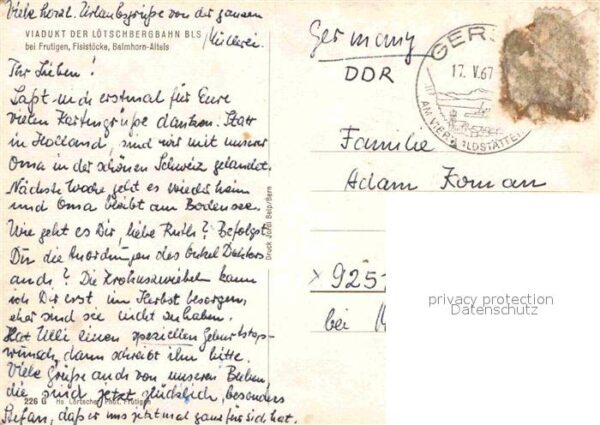 Viele herzl. Urlaubsgrüße von der ganzen
VIADUKT DER LÖTSCHBERGBAHN BLS
bei Frutigen, Fisistöcke, Balmhorn-Altels
Ihr Lieben!
Laßt mich erstmal für Eure
vielen Kartengrüße danken. Statt
in Holland, sind wir mit unserer
Oma in der schönen Schweiz gelandet.
Nächste Woche geht es wieder heim
und Oma bleibt am Bodensee.
Wie geht es Dir, liebe Ruth? Befolgst
Du die Anordnungen des Onkel Doktors
auch? Die Krokuszwiebeln kann
ich Dir erst im Herbst besorgen,
eher sind sie nicht zu haben.
Hat Ulli einen speziellen Geburtstags-
wunsch, dann schreibt ihn bitte.
Viele Grüße auch von unseren Buben,
die sind jetzt glücklich, besonders
226 G Hs. Lörtscher, Phot. Frutigen
Stefan, daß er uns jetzt mal ganz für sich hat.
Druck Jordi Belp/Bern
Germany
DDR
GER
17. V. 67
AM VIERWALDSTÄTTER
Familie
Adam Koman
925
bei
privacy protection
Datenschutz